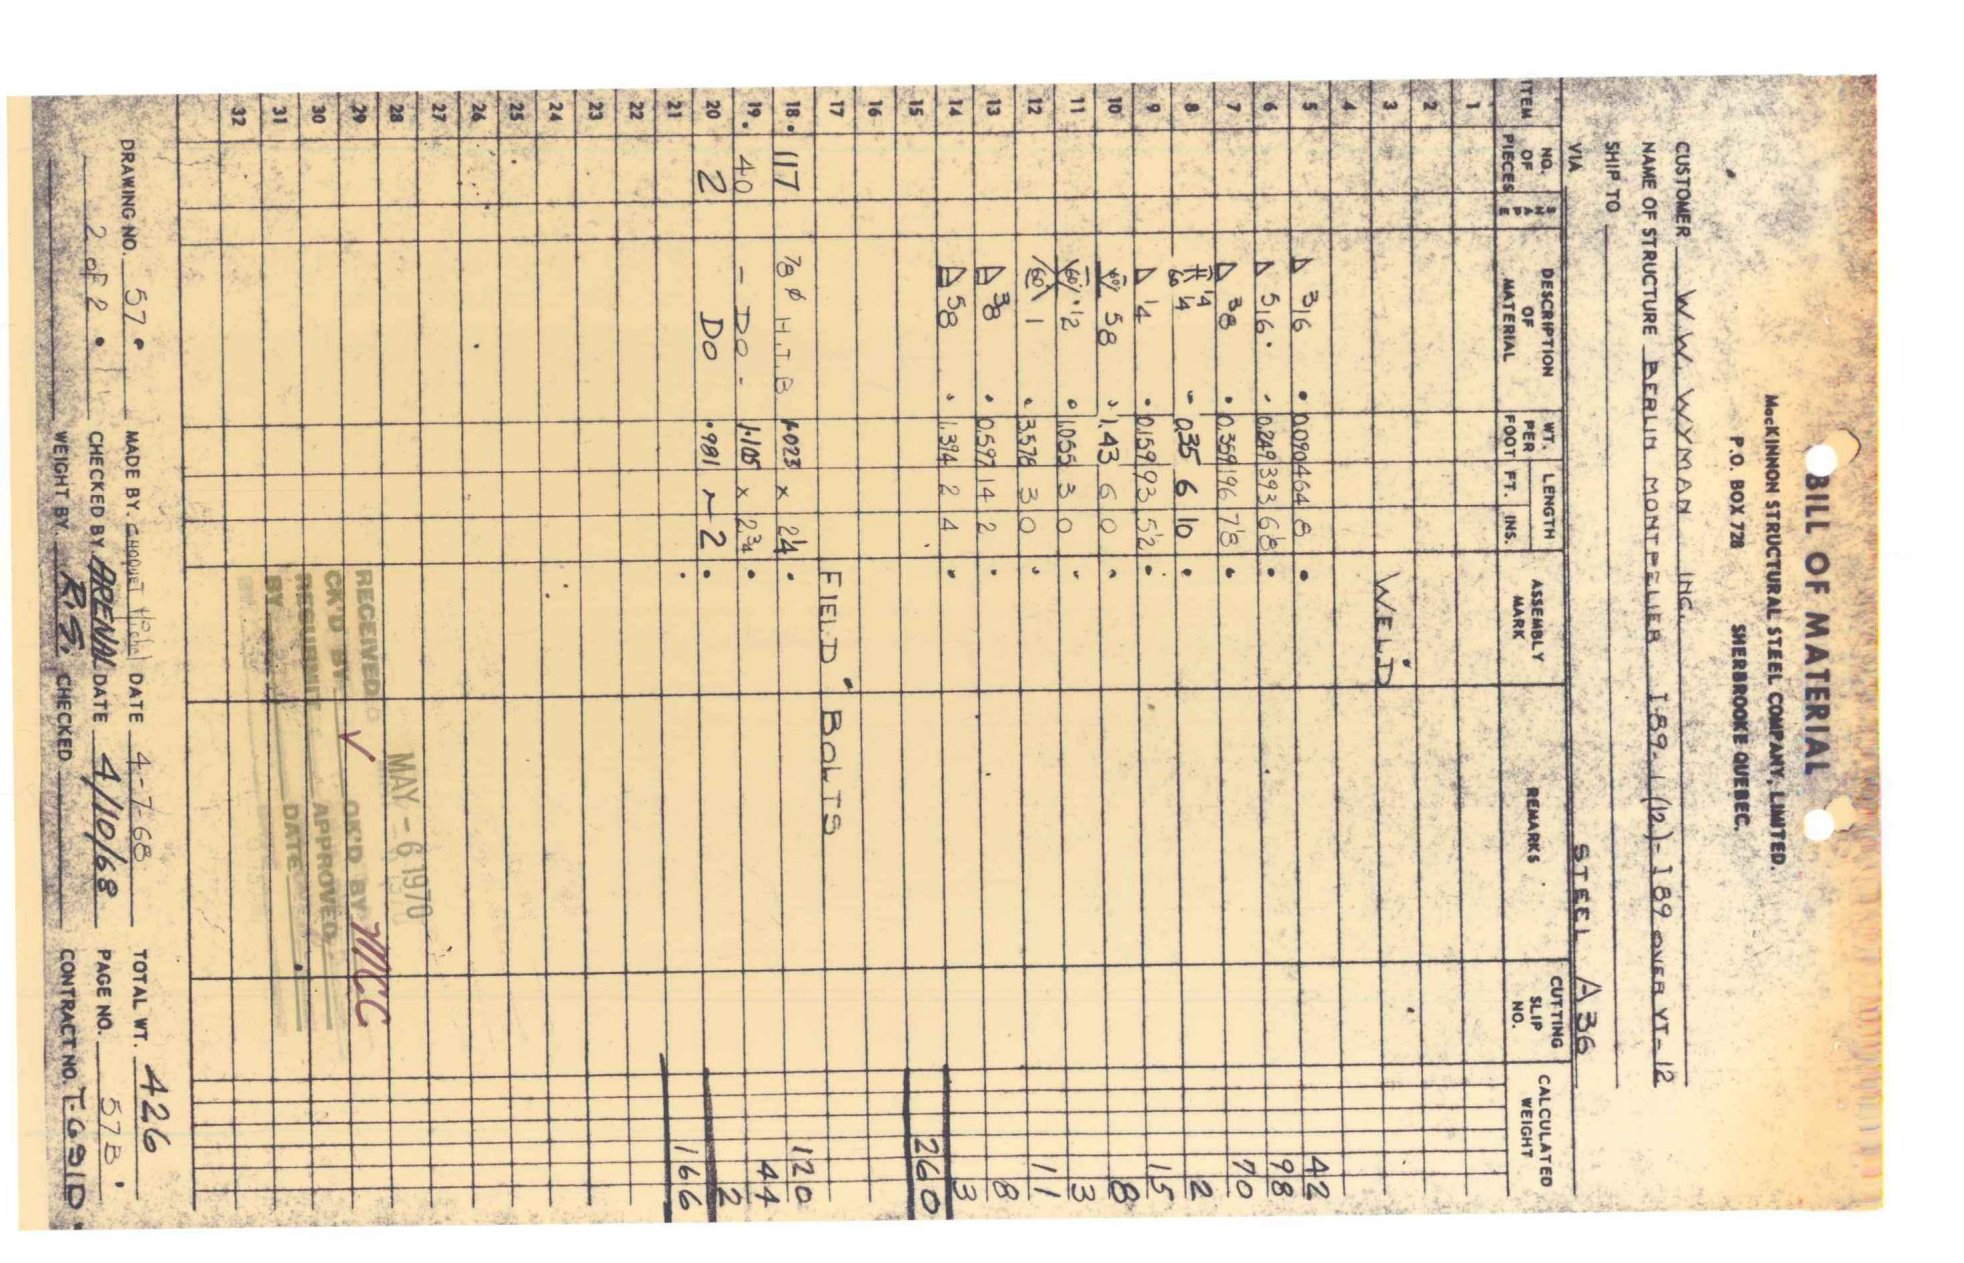 BILL OF MATERIAL
McKINNON STRUCTURAL STEEL COMPANY, LIMITED.
P.O. BOX 728 SHERBROOKE QUEBEC.
CUSTOMER W.W. WYMAN INC.
NAME OF STRUCTURE BERLIN MONTPELIER I-89-1(12)-I 89 OVER VT-12
SHIP TO
VIA STEEL A36
ITEM NO. OF PIECES SHAPE DESCRIPTION OF MATERIAL WT. PER FOOT LENGTH FT. INS. ASSEMBLY MARK REMARKS CUTTING SLIP NO. CALCULATED WEIGHT
1
2
3 WELD
4
5 3/16 0.090 464 8 42
6 5/16 0.249 393 6 1/8 98
7 3/8 0.359 196 7 1/8 70
8 1/4 60 1/4 0.35 6 10 2
9 1/4 0.159 93 5 1/2 15
10 60° 5/8 1.43 6 0 8
11 60° 1/2 1.055 3 0 3
12 60° 1 3.578 3 0 11
13 3/8 0.597 14 2 8
14 5/8 1.394 2 4 3
15 260
16
17 FIELD BOLTS
18 117 7/8 ø H.T.B 1.023 x 2 1/4 120
19 40 - DO - 1.105 x 2 3/4 44
20 2 DO .981 ~ 2 2
21 166
22
23
24
25
26
27
28
29
30
31
32
MAY - 6 1970
RECEIVED
CK'D BY ✓ OK'D BY MCC
RESUBMIT APPROVED
BY DATE
DRAWING NO. 57 MADE BY. CHOQUET DATE 4-7-68 TOTAL WT. 426
2 of 2 CHECKED BY ARENAL DATE 4/10/68 PAGE NO. 57B
WEIGHT BY. R.S. CHECKED CONTRACT NO. T-691D